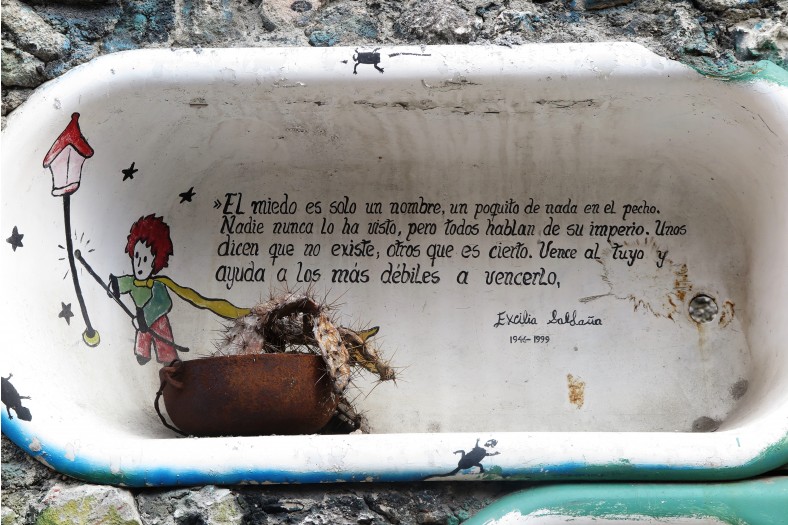 »El miedo es solo un nombre, un poquito de nada en el pecho.
Nadie nunca lo ha visto, pero todos hablan de su imperio. Unos
dicen que no existe, otros que es cierto. Vence al tuyo y
ayuda a los más débiles a vencerlo.
Excilia Saldaña
1946-1999